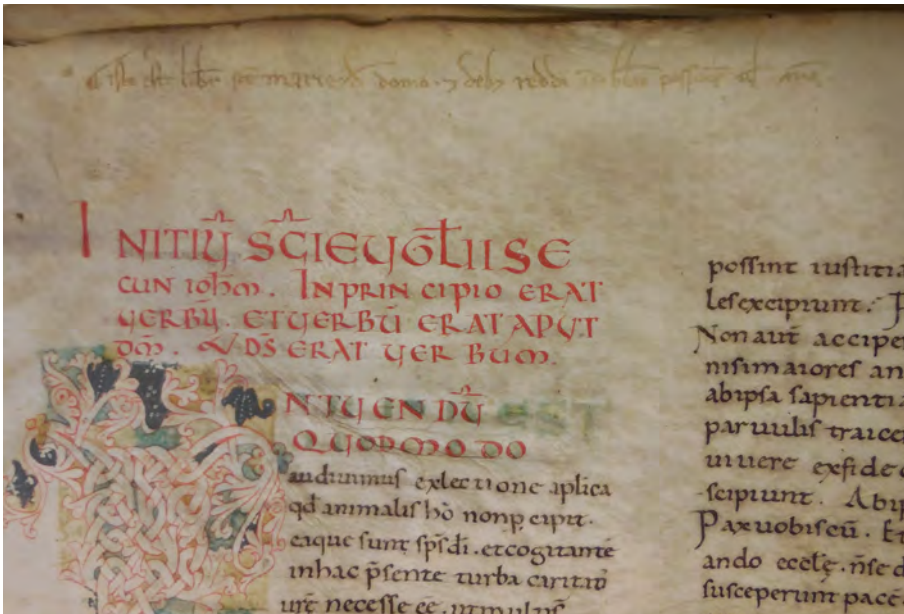 iste est liber sce marie domo. 7 debz reddi
INITIŪ SC̄I EUG̅LII SE
CUN IOH̄M. IN PRINCIPIO ERAT
UERBŪ. ET UERBŪ ERAT APUT
DM̄. & DS ERAT UERBUM.
NTUENDŪ EST
QUODMODO
audiuimus exlectione aplica
qd animalis hō nonp cipit.
eaque sunt sp̄s dī. et cogitante
inhac p̄sente turba caritatis
urē necesse ee. ut multus
possint iustitia
les excipiunt.
Non aut̄ accipe
nisi maiores an
abipsa sapientia
paruulis traice
uiuere exfide
scipiunt. Abip
Pax uobiscū. Et
ando eccle. n̄se d
susceperunt pacē